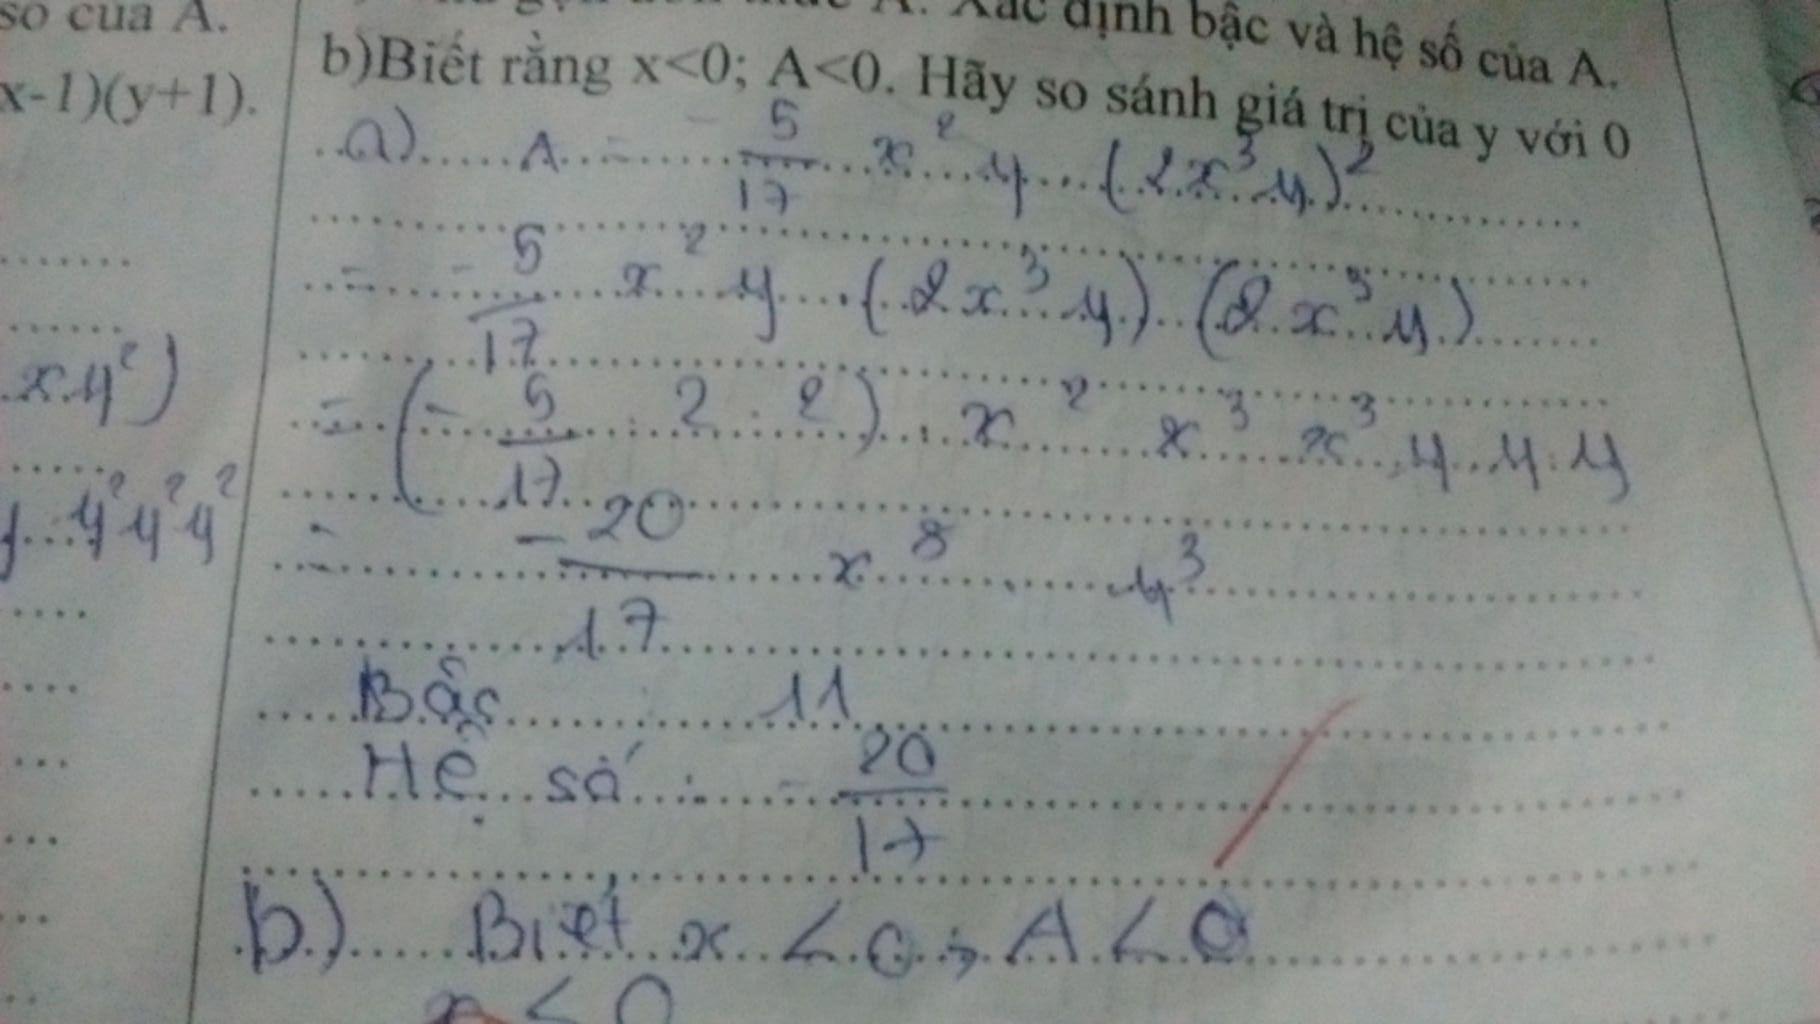 số của A.
x-1)(y+1).
x.y²)
y² y² y²
A. Xác định bậc và hệ số của A.
b)Biết rằng x<0; A<0. Hãy so sánh giá trị của y với 0
a) A = -5/17 x² y (2x³y)²
= -5/17 x² y (2x³y) (2x³y)
= (-5/17 . 2 . 2) . x² x³ x³ . y . y . y
= -20/17 x⁸ . y³
Bậc : 11
Hệ số : -20/17
b) Biết x < 0 ; A < 0
x < 0